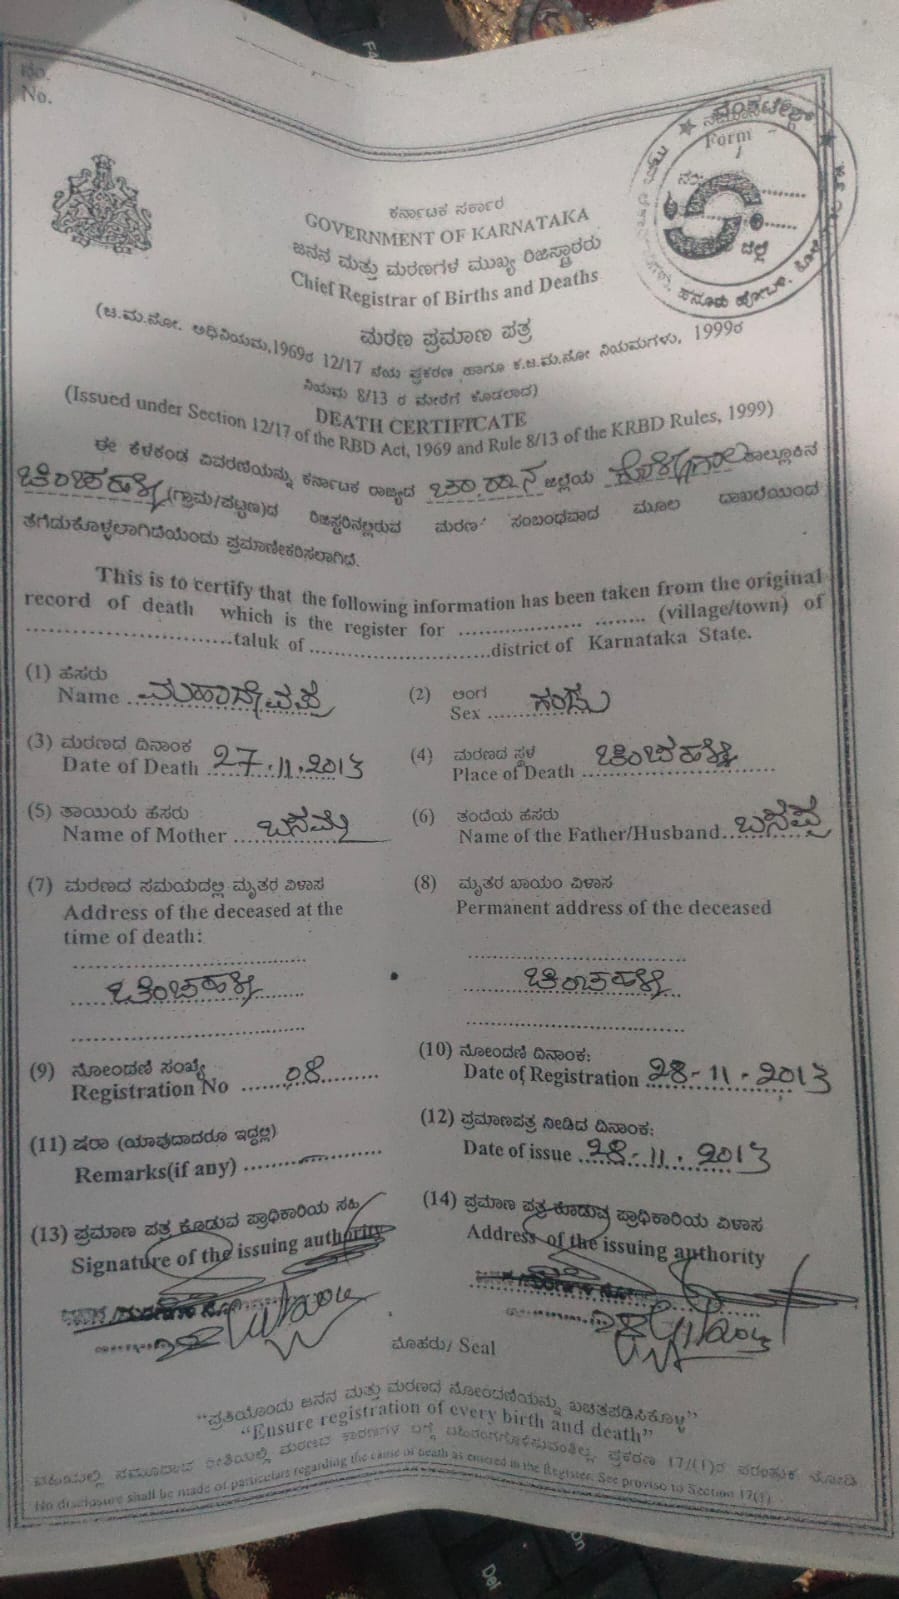 ನಂ.
No.
ನಮೂನೆ - 6
Form
ಜಿಲ್ಲೆ
ಕರ್ನಾಟಕ ಸರ್ಕಾರ
GOVERNMENT OF KARNATAKA
ಜನನ ಮತ್ತು ಮರಣಗಳ ಮುಖ್ಯ ರಿಜಿಸ್ಟ್ರಾರರು
Chief Registrar of Births and Deaths
ಮರಣ ಪ್ರಮಾಣ ಪತ್ರ
(ಜ.ಮ.ನೋ. ಅಧಿನಿಯಮ,1969ರ 12/17 ನೆಯ ಪ್ರಕರಣ ಹಾಗೂ ಕ.ಜ.ಮ.ನೋ ನಿಯಮಗಳು, 1999ರ
ನಿಯಮ 8/13 ರ ಮೇರೆಗೆ ಕೊಡಲಾದ)
DEATH CERTIFICATE
(Issued under Section 12/17 of the RBD Act, 1969 and Rule 8/13 of the KRBD Rules, 1999)
ಈ ಕೆಳಕಂಡ ವಿವರಣೆಯನ್ನು ಕರ್ನಾಟಕ ರಾಜ್ಯದ ಚಾ.ರಾ.ನ ಜಿಲ್ಲೆಯ ಕೊಳ್ಳೇಗಾಲ ತಾಲ್ಲೂಕಿನ
ಚಿಂಚಹಳ್ಳಿ (ಗ್ರಾಮ/ಪಟ್ಟಣ)ದ ರಿಜಿಸ್ಟರಿನಲ್ಲಿರುವ ಮರಣ ಸಂಬಂಧವಾದ ಮೂಲ ದಾಖಲೆಯಿಂದ
ತೆಗೆದುಕೊಳ್ಳಲಾಗಿದೆಯೆಂದು ಪ್ರಮಾಣೀಕರಿಸಲಾಗಿದೆ.
This is to certify that the following information has been taken from the original
record of death which is the register for .................. ........ (village/town) of
...........................taluk of ...........................district of Karnataka State.
(1) ಹೆಸರು
Name ಮಹಾದೇವಪ್ಪ
(2) ಲಿಂಗ
Sex ಗಂಡು
(3) ಮರಣದ ದಿನಾಂಕ
Date of Death 27.11.2013
(4) ಮರಣದ ಸ್ಥಳ
Place of Death ಚಿಂಚಹಳ್ಳಿ
(5) ತಾಯಿಯ ಹೆಸರು
Name of Mother ಬಸಮ್ಮ
(6) ತಂದೆಯ ಹೆಸರು
Name of the Father/Husband ಬಸಪ್ಪ
(7) ಮರಣದ ಸಮಯದಲ್ಲಿ ಮೃತರ ವಿಳಾಸ
Address of the deceased at the
time of death:
ಚಿಂಚಹಳ್ಳಿ
(8) ಮೃತರ ಖಾಯಂ ವಿಳಾಸ
Permanent address of the deceased
ಚಿಂಚಹಳ್ಳಿ
(9) ನೋಂದಣಿ ಸಂಖ್ಯೆ
Registration No 08
(10) ನೋಂದಣಿ ದಿನಾಂಕ:
Date of Registration 28-11-2013
(11) ಷರಾ (ಯಾವುದಾದರೂ ಇದ್ದಲ್ಲಿ)
Remarks(if any)
(12) ಪ್ರಮಾಣಪತ್ರ ನೀಡಿದ ದಿನಾಂಕ:
Date of issue 28-11.2013
(13) ಪ್ರಮಾಣ ಪತ್ರ ಕೊಡುವ ಪ್ರಾಧಿಕಾರಿಯ ಸಹಿ
Signature of the issuing authority
(14) ಪ್ರಮಾಣ ಪತ್ರ ಕೊಡುವ ಪ್ರಾಧಿಕಾರಿಯ ವಿಳಾಸ
Address of the issuing authority
ಮೊಹರು/ Seal
“ಪ್ರತಿಯೊಂದು ಜನನ ಮತ್ತು ಮರಣದ ನೋಂದಣಿಯನ್ನು ಖಚಿತಪಡಿಸಿಕೊಳ್ಳಿ”
“Ensure registration of every birth and death”
No disclosure shall be made of particulars regarding the cause of death as entered in the Register. See proviso to Section 17(1)